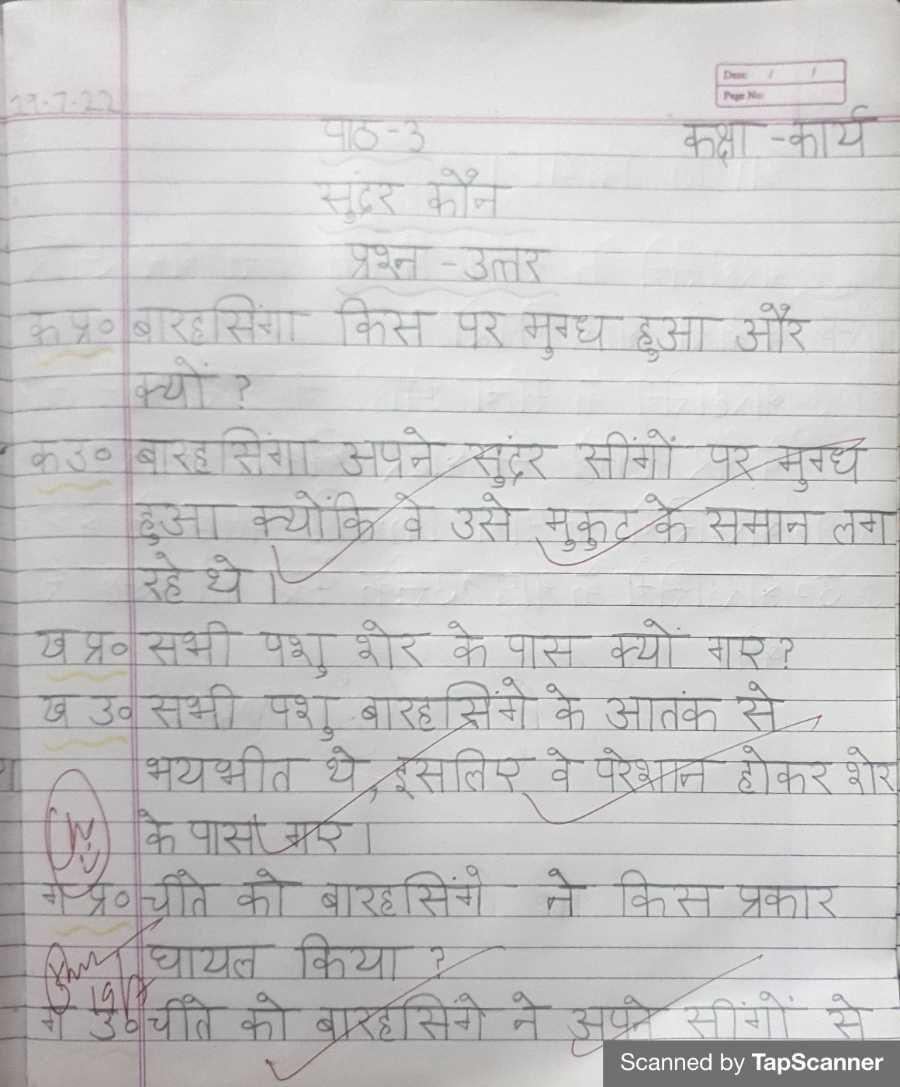 Date: / /
Page No:
29-7-22
पाठ-3 कक्षा -कार्य
सुंदर कौन
प्रश्न -उत्तर
क प्र० बारहसिंगा किस पर मुग्ध हुआ और
क्यों ?
क उ० बारहसिंगा अपने सुंदर सींगों पर मुग्ध
हुआ क्योंकि वे उसे मुकुट के समान लग
रहे थे ।
ख प्र० सभी पशु शेर के पास क्यों गए?
ख उ० सभी पशु बारहसिंगे के आतंक से
भयभीत थे, इसलिए वे परेशान होकर शेर
के पास गए।
ग प्र० चीते को बारहसिंगे ने किस प्रकार
घायल किया ?
ग उ० चीते को बारहसिंगे ने अपने सींगों से
Scanned by TapScanner